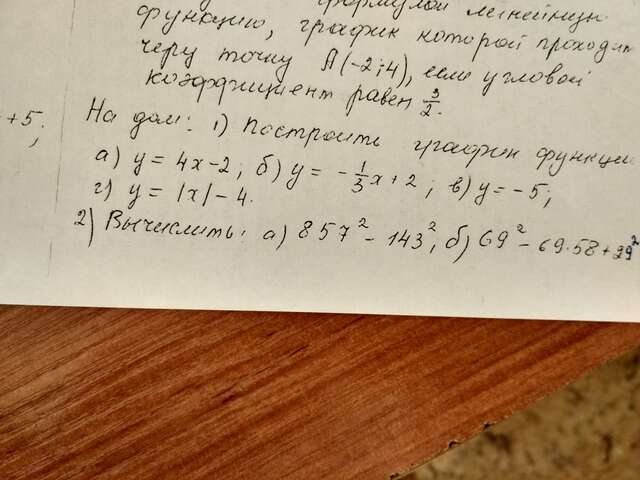 формулой линейную
функцию, график которой проходит
через точку A(-2;4), если угловой
коэффициент равен 3/2.
+5;
На дом: 1) Построить график функции
а) y = 4x-2; б) y = -1/3x+2; в) y = -5;
г) y = |x| - 4.
2) Вычислить: а) 857² - 143²; б) 69² - 69·58 + 29²